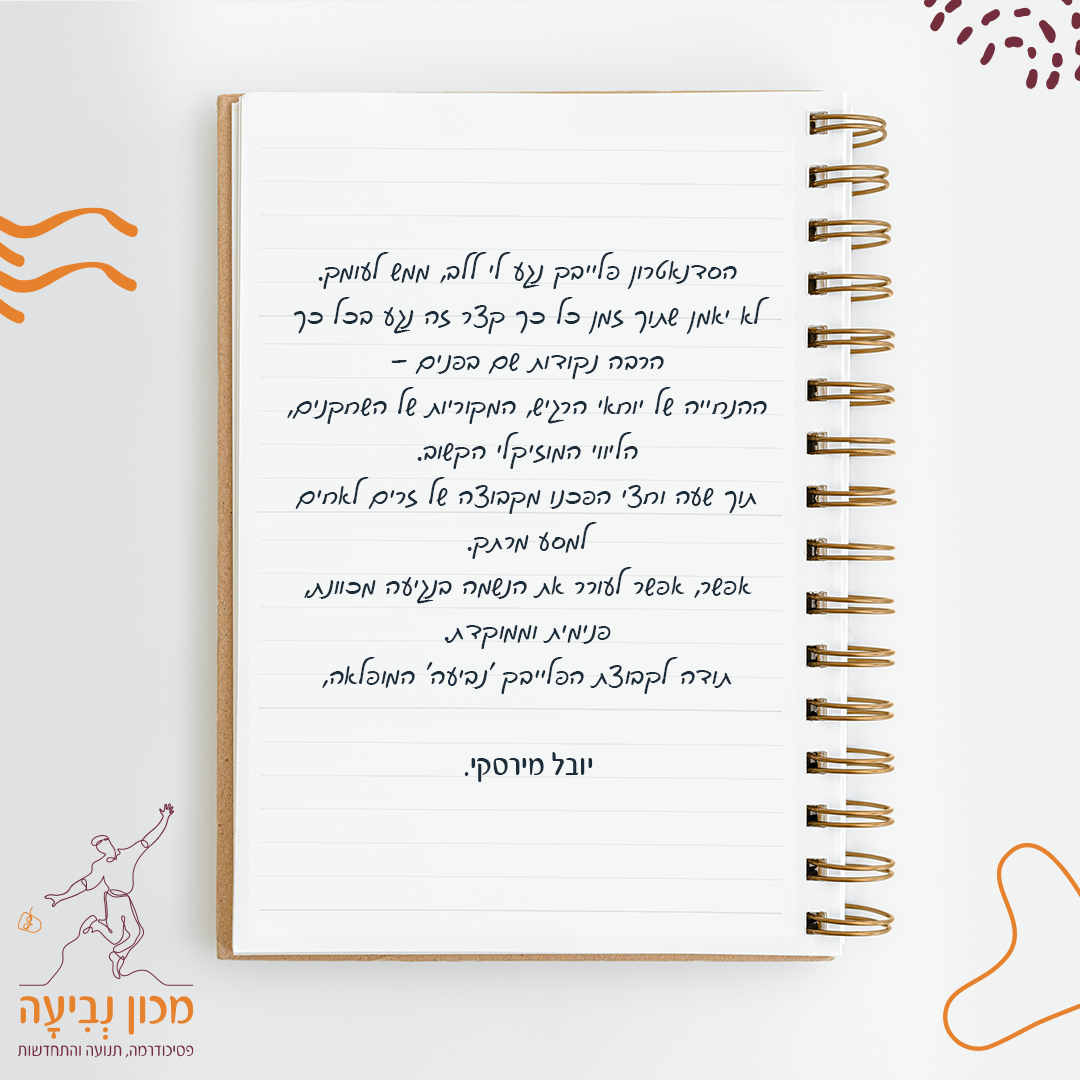 הסדנאטרון פלייבק נגע לי ללב, ממש לעומק.
לא יאמן שתוך זמן כל כך קצר זה נגע בכל כך
הרבה נקודות שם בפנים –
ההנחייה של יוחאי הרגיש, המקוריות של השחקנים,
הליווי המוזיקלי הקשוב.
תוך שעה וחצי הפכנו מקבוצה של זרים לאחים
למסע מרתק.
אפשר, אפשר לעורר את הנשמה בנגיעה מכוונת,
פנימית וממוקדת.
תודה לקבוצת הפלייבק 'נביעה' המופלאה,
יובל מירסקי.
מכון נְבִיעָה
פסיכודרמה, תנועה והתחדשות